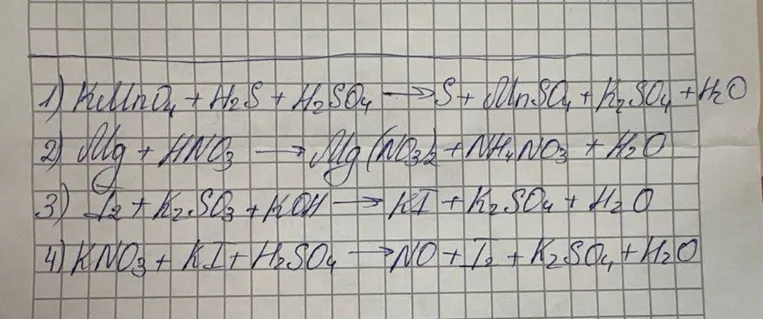 1) KMnO4 + H2S + H2SO4 → S + MnSO4 + K2SO4 + H2O
2) Mg + HNO3 → Mg(NO3)2 + NH4NO3 + H2O
3) I2 + K2SO3 + KOH → KI + K2SO4 + H2O
4) KNO3 + KI + H2SO4 → NO + I2 + K2SO4 + H2O